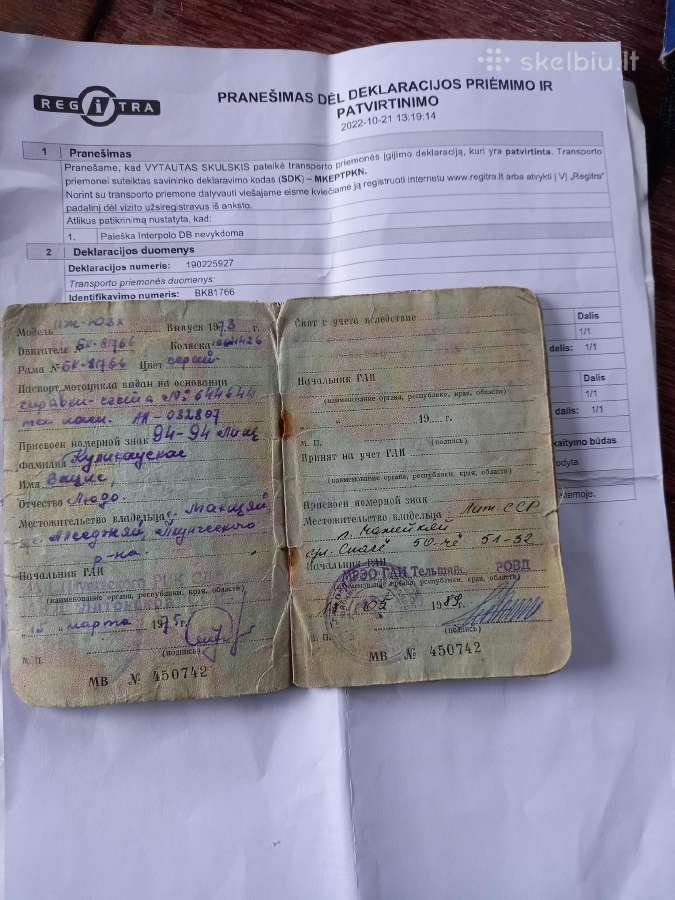 skelbiu.lt
REGITRA
PRANEŠIMAS DĖL DEKLARACIJOS PRIĖMIMO IR
PATVIRTINIMO
2022-10-21 13:19:14
1 Pranešimas
Pranešame, kad VYTAUTAS SKULSKIS pateikė transporto priemonės įgijimo deklaraciją, kuri yra patvirtinta. Transporto
priemonei suteiktas savininko deklaravimo kodas (SDK) – MKEPTPKN.
Norint su transporto priemone dalyvauti viešajame eisme kviečiame ją registruoti internetu www.regitra.lt arba atvykti į VĮ „Regitra"
padalinį dėl vizito užsiregistravus iš anksto.
Atlikus patikrinimą nustatyta, kad:
1. Paieška Interpolo DB nevykdoma
2 Deklaracijos duomenys
Deklaracijos numeris: 190225927
Transporto priemonės duomenys:
Identifikavimo numeris: BK81766
Dalis
1/1
dalis: 1/1
Dalis
1/1
1/1
kaitymo būdas
odyta
sistemoje.
Модель Иж-Ю3к Выпуск 1973 г.
Двигателя БК-81766 Коляска
Рама № БК-81766 Цвет серый
Паспорт мотоцикла выдан на основании
справки-счета № 644644
тех. пасп. АК-032807
Присвоен номерной знак 94-94
Фамилия
Имя Вацис
Отчество Людо
Местожительство владельца
р-на
Начальник ГАИ
(наименование органа, республики, края, области)
" 15 " марта 1975 г.
М. П. (подпись)
МВ № 450742
Снят с учета вследствие
Начальник ГАИ
(наименование органа, республики, края, области)
" 19 г.
М. П. (подпись)
Принят на учет ГАИ
(наименование органа, республики, края, области)
Присвоен номерной знак
Местожительство владельца Лит. ССР
50-че 51-32
Начальник ГАИ
МРЭО ГАИ Тельшяй РОВД
(наименование органа, республики, края, области)
1989 г.
М. П. (подпись)
МВ № 450742